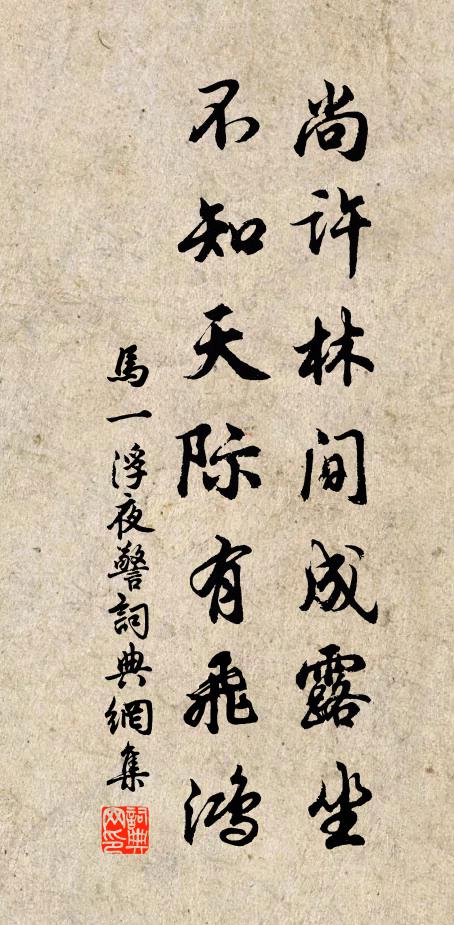 尚许林间成露坐
不知天际有飛鴻
馬一浮夜警詞典網集
詞典網印